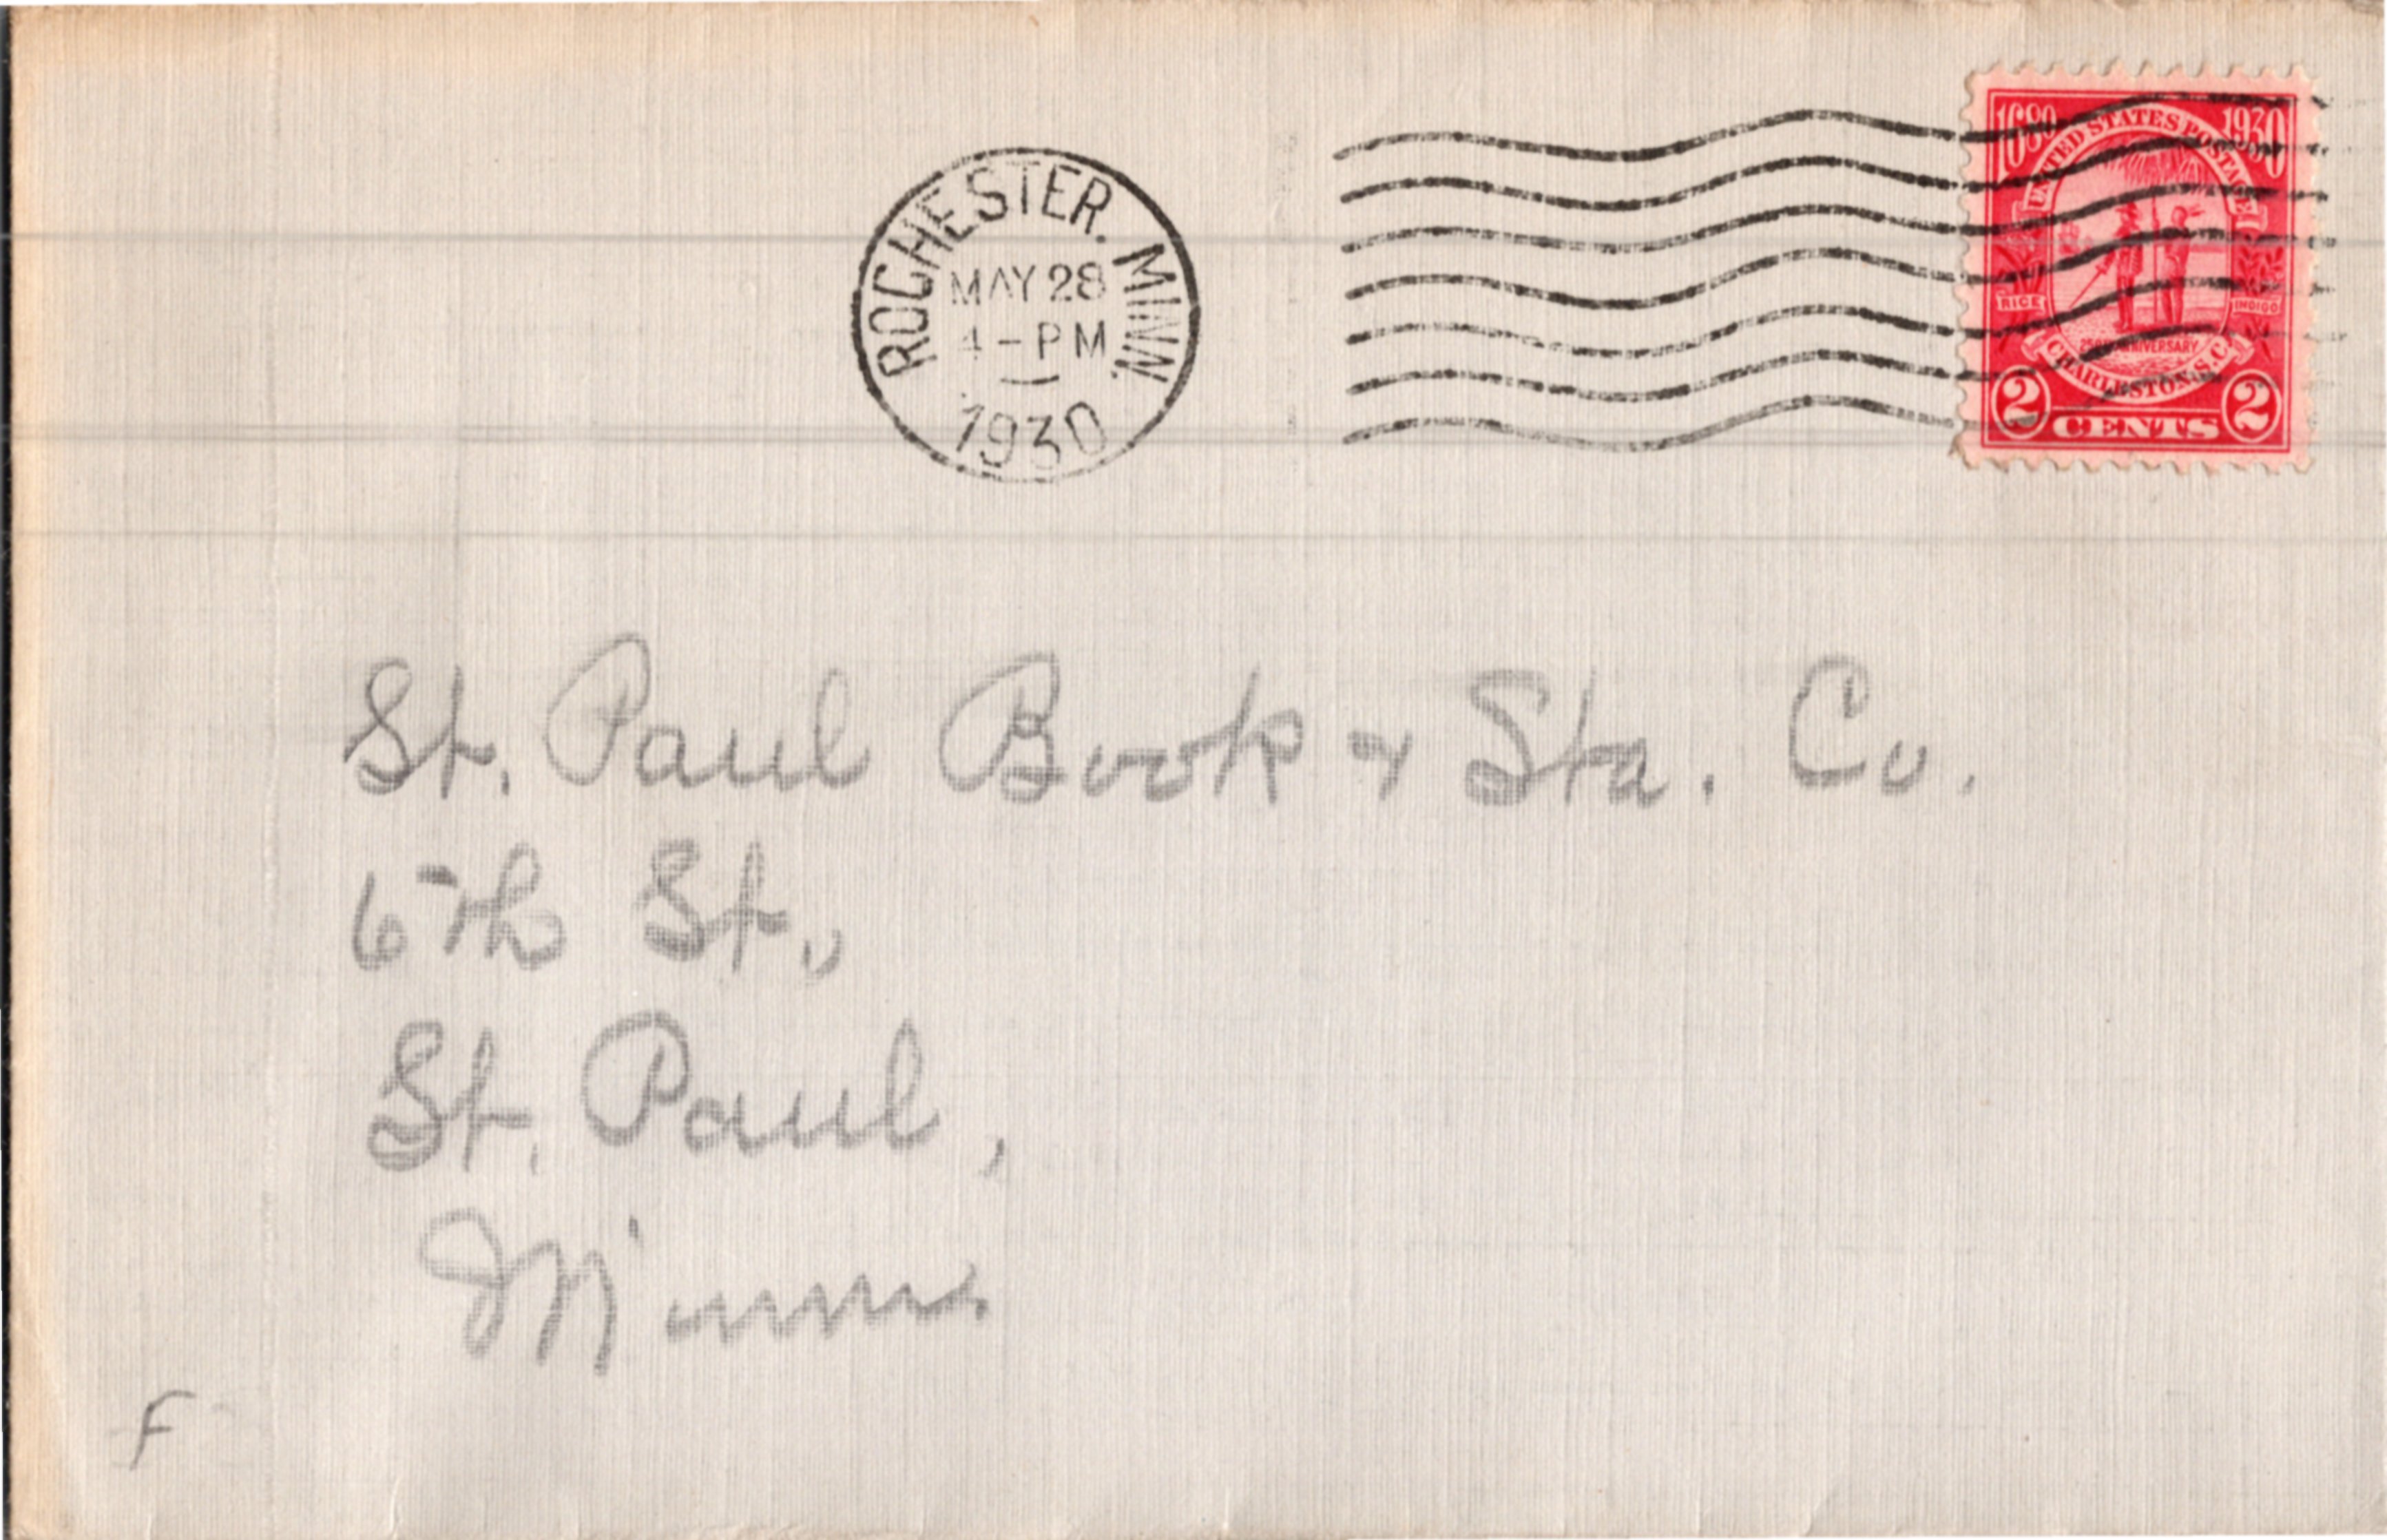 ROCHESTER. MINN.
MAY 28
4-PM
1930
1680 1930
UNITED STATES POSTAGE
RICE INDIGO
250TH ANNIVERSARY
CHARLESTON, S.C.
2 CENTS 2
St. Paul Book & Sta. Co.
6th St.,
St. Paul,
Minn.
F